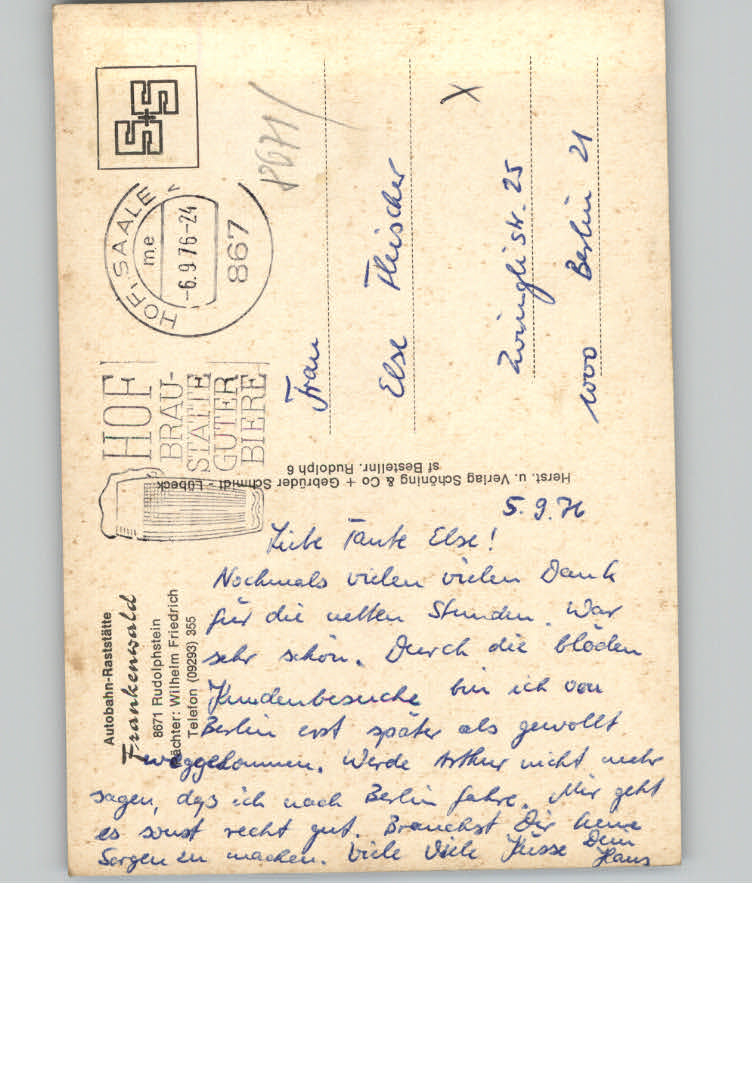 Autobahn-Raststätte
Frankenwald
8671 Rudolphstein
ächter: Wilhelm Friedrich
Telefon (09293) 355
5.9.76
Liebe Tante Else!
Nochmals vielen vielen Dank
für die netten Stunden. War
sehr schön. Durch die blöden
Kundenbesuche bin ich von
Berlin erst später als gewollt
weggekommen. Werde Arthur nicht mehr
sagen, daß ich nach Berlin fahre. Mir geht
es sonst recht gut. Brauchst Dir keine
Sorgen zu machen. Viele Viele Küsse Dein
Hans
Herst. u. Verlag Schöning & Co + Gebrüder Schmidt - Lübeck
sf Bestellnr. Rudolph 6
HOF
BRAU-
STÄTTE
GUTER
BIERE
HOF, SAALE
me
-6.9.76-24
867
S+S
8671/
Frau
Else Fleischer
x
Zwinglistr. 25
1000 Berlin 21